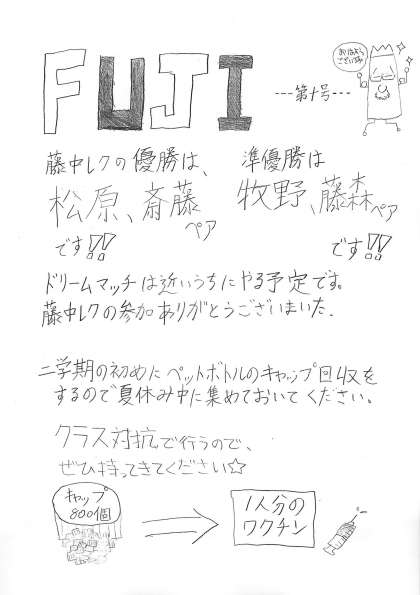 FUJI
---第十号---
おはよう
ございます
藤中レクの優勝は、
松原、斎藤
ペア
です!!
準優勝は
牧野、藤森ペア
です!!
ドリームマッチは近いうちにやる予定です。
藤中レクの参加ありがとうございました.
二学期の初めにペットボトルのキャップ回収を
するので夏休み中に集めておいてください。
クラス対抗で行うので、
ぜひ持ってきてください☆
キャップ
800個
1人分の
ワクチン